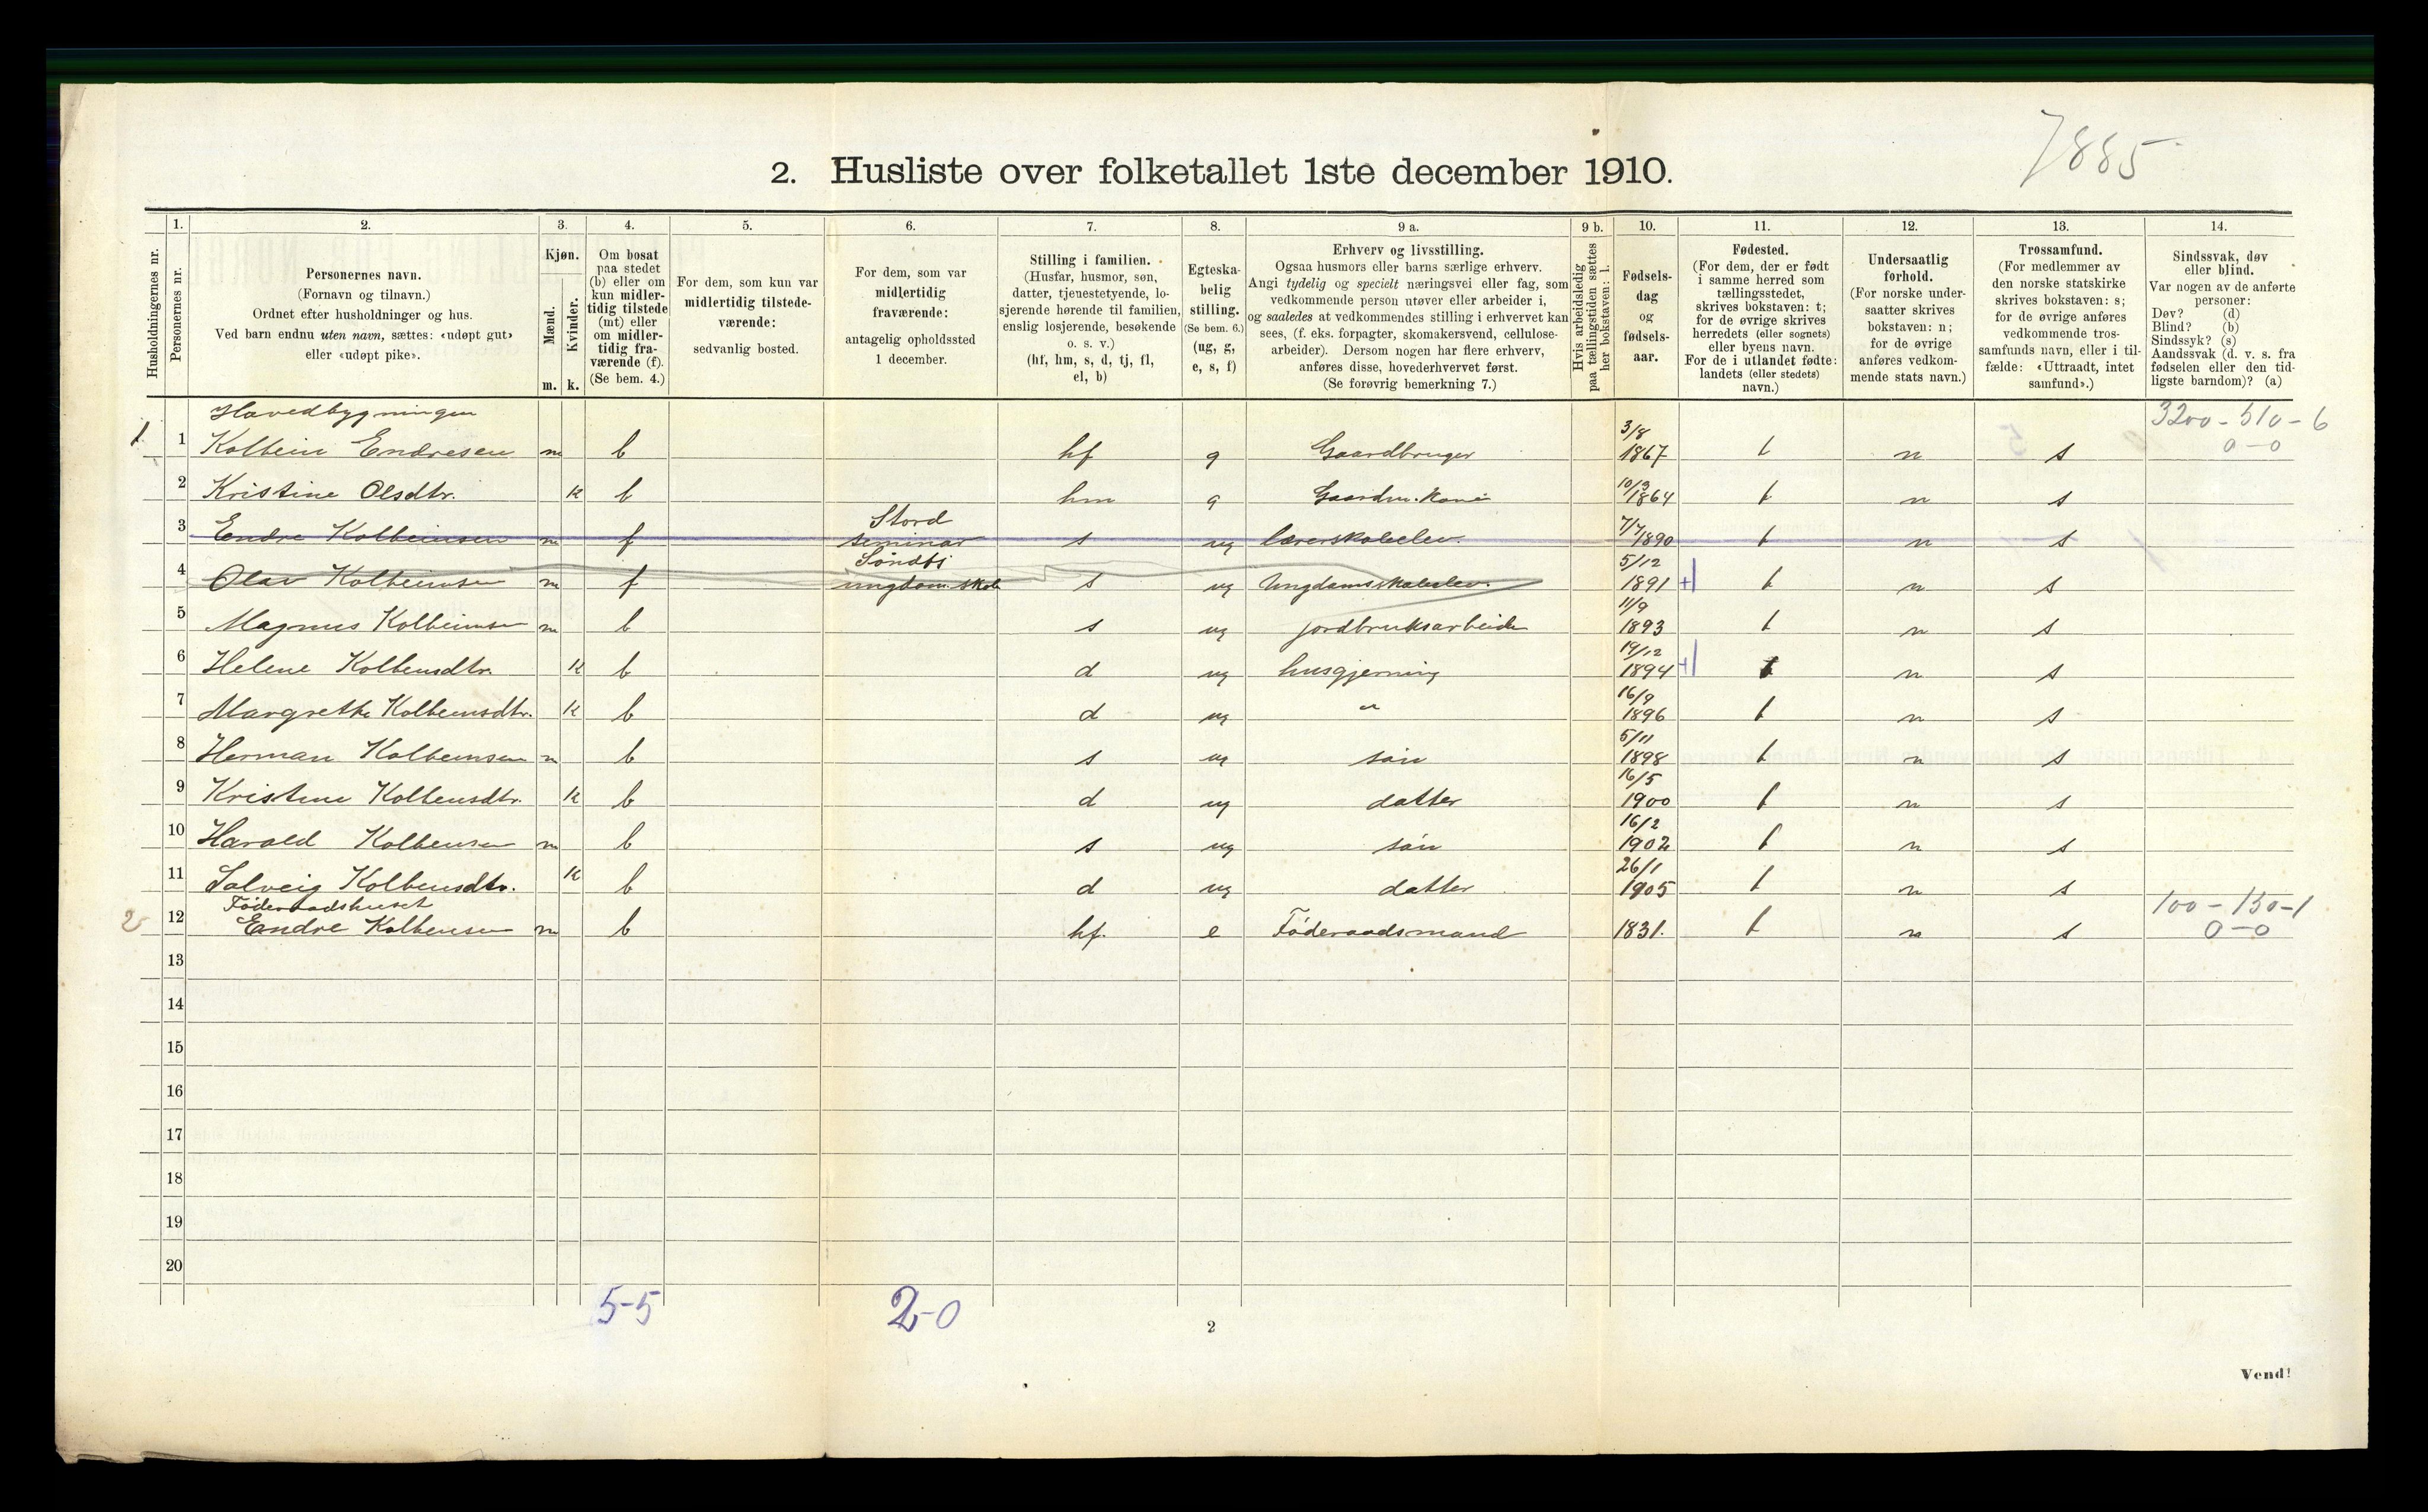 7885
2. Husliste over folketallet 1ste december 1910.
1. 2. 3. 4. 5. 6. 7. 8. 9 a. 9 b. 10. 11. 12. 13. 14.
Husholdningernes nr.
Personernes nr.
Personernes navn.
(Fornavn og tilnavn.)
Ordnet efter husholdninger og hus.
Ved barn endnu uten navn, sættes: «udøpt gut»
eller «udøpt pike».
Kjøn.
Mænd.
Kvinder.
m. k.
Om bosat
paa stedet
(b) eller om
kun midler-
tidig tilstede
(mt) eller
om midler-
tidig fra-
værende (f).
(Se bem. 4.)
For dem, som kun var
midlertidig tilstede-
værende:
sedvanlig bosted.
For dem, som var
midlertidig
fraværende:
antagelig opholdssted
1 december.
Stilling i familien.
(Husfar, husmor, søn,
datter, tjenestetyende, lo-
sjerende hørende til familien,
enslig losjerende, besøkende
o. s. v.)
(hf, hm, s, d, tj, fl,
el, b)
Egteska-
belig
stilling.
(Se bem. 6.)
(ug, g,
e, s, f)
Erhverv og livsstilling.
Ogsaa husmors eller barns særlige erhverv.
Angi tydelig og specielt næringsvei eller fag, som
vedkommende person utøver eller arbeider i,
og saaledes at vedkommendes stilling i erhvervet kan
sees, (f. eks. forpagter, skomakersvend, cellulose-
arbeider). Dersom nogen har flere erhverv,
anføres disse, hovederhvervet først.
(Se forøvrig bemerkning 7.)
Hvis arbeidsledig
paa tællingstiden sættes
her bokstaven: l.
Fødsels-
dag
og
fødsels-
aar.
Fødested.
(For dem, der er født
i samme herred som
tællingsstedet,
skrives bokstaven: t;
for de øvrige skrives
herredets (eller sognets)
eller byens navn.
For de i utlandet fødte:
landets (eller stedets)
navn.)
Undersaatlig
forhold.
(For norske under-
saatter skrives
bokstaven: n;
for de øvrige
anføres vedkom-
mende stats navn.)
Trossamfund.
(For medlemmer av
den norske statskirke
skrives bokstaven: s;
for de øvrige anføres
vedkommende tros-
samfunds navn, eller i til-
fælde: «Uttraadt, intet
samfund».)
Sindssvak, døv
eller blind.
Var nogen av de anførte
personer:
Døv? (d)
Blind? (b)
Sindssyk? (s)
Aandssvak (d. v. s. fra
fødselen eller den tid-
ligste barndom)? (a)
Hovedbygningen 3200-510-6
1 1 Kolbein Endresen m b hf g Gaardbruger 3/8 1867 t n s 0-0
2 Kristine Olsdtr. k b hm g Gaardm. Kone 10/9 1864 t n s
3 Endre Kolbeinsen m f Stord seminar s ug lærerskoleelev. 7/7 1890 t n s
4 Olav Kolbeinsen m f ungdom.skole s ug Ungdomsskoleelev. 5/12 1891 + t n s
5 Magnus Kolbeinsen m b s ug jordbruksarbeide 11/9 1893 t n s
6 Helene Kolbensdtr. k b d ug husgjerning 19/12 1894 + t n s
7 Margrethe Kolbensdtr. k b d ug " 16/9 1896 t n s
8 Herman Kolbeinsen m b s ug søn 5/11 1898 t n s
9 Kristine Kolbensdtr. k b d ug datter 16/5 1900 t n s
10 Harald Kolbensen m b s ug søn 16/2 1902 t n s
11 Solveig Kolbensdtr. k b d ug datter 26/1 1905 t n s
Føderaadshuset 100-130-1
2 12 Endre Kolbensen m b hf. e Føderaadsmand 1831. t n s 0-0
13
14
15
16
17
18
19
20
5-5 2-0
2
Vend!